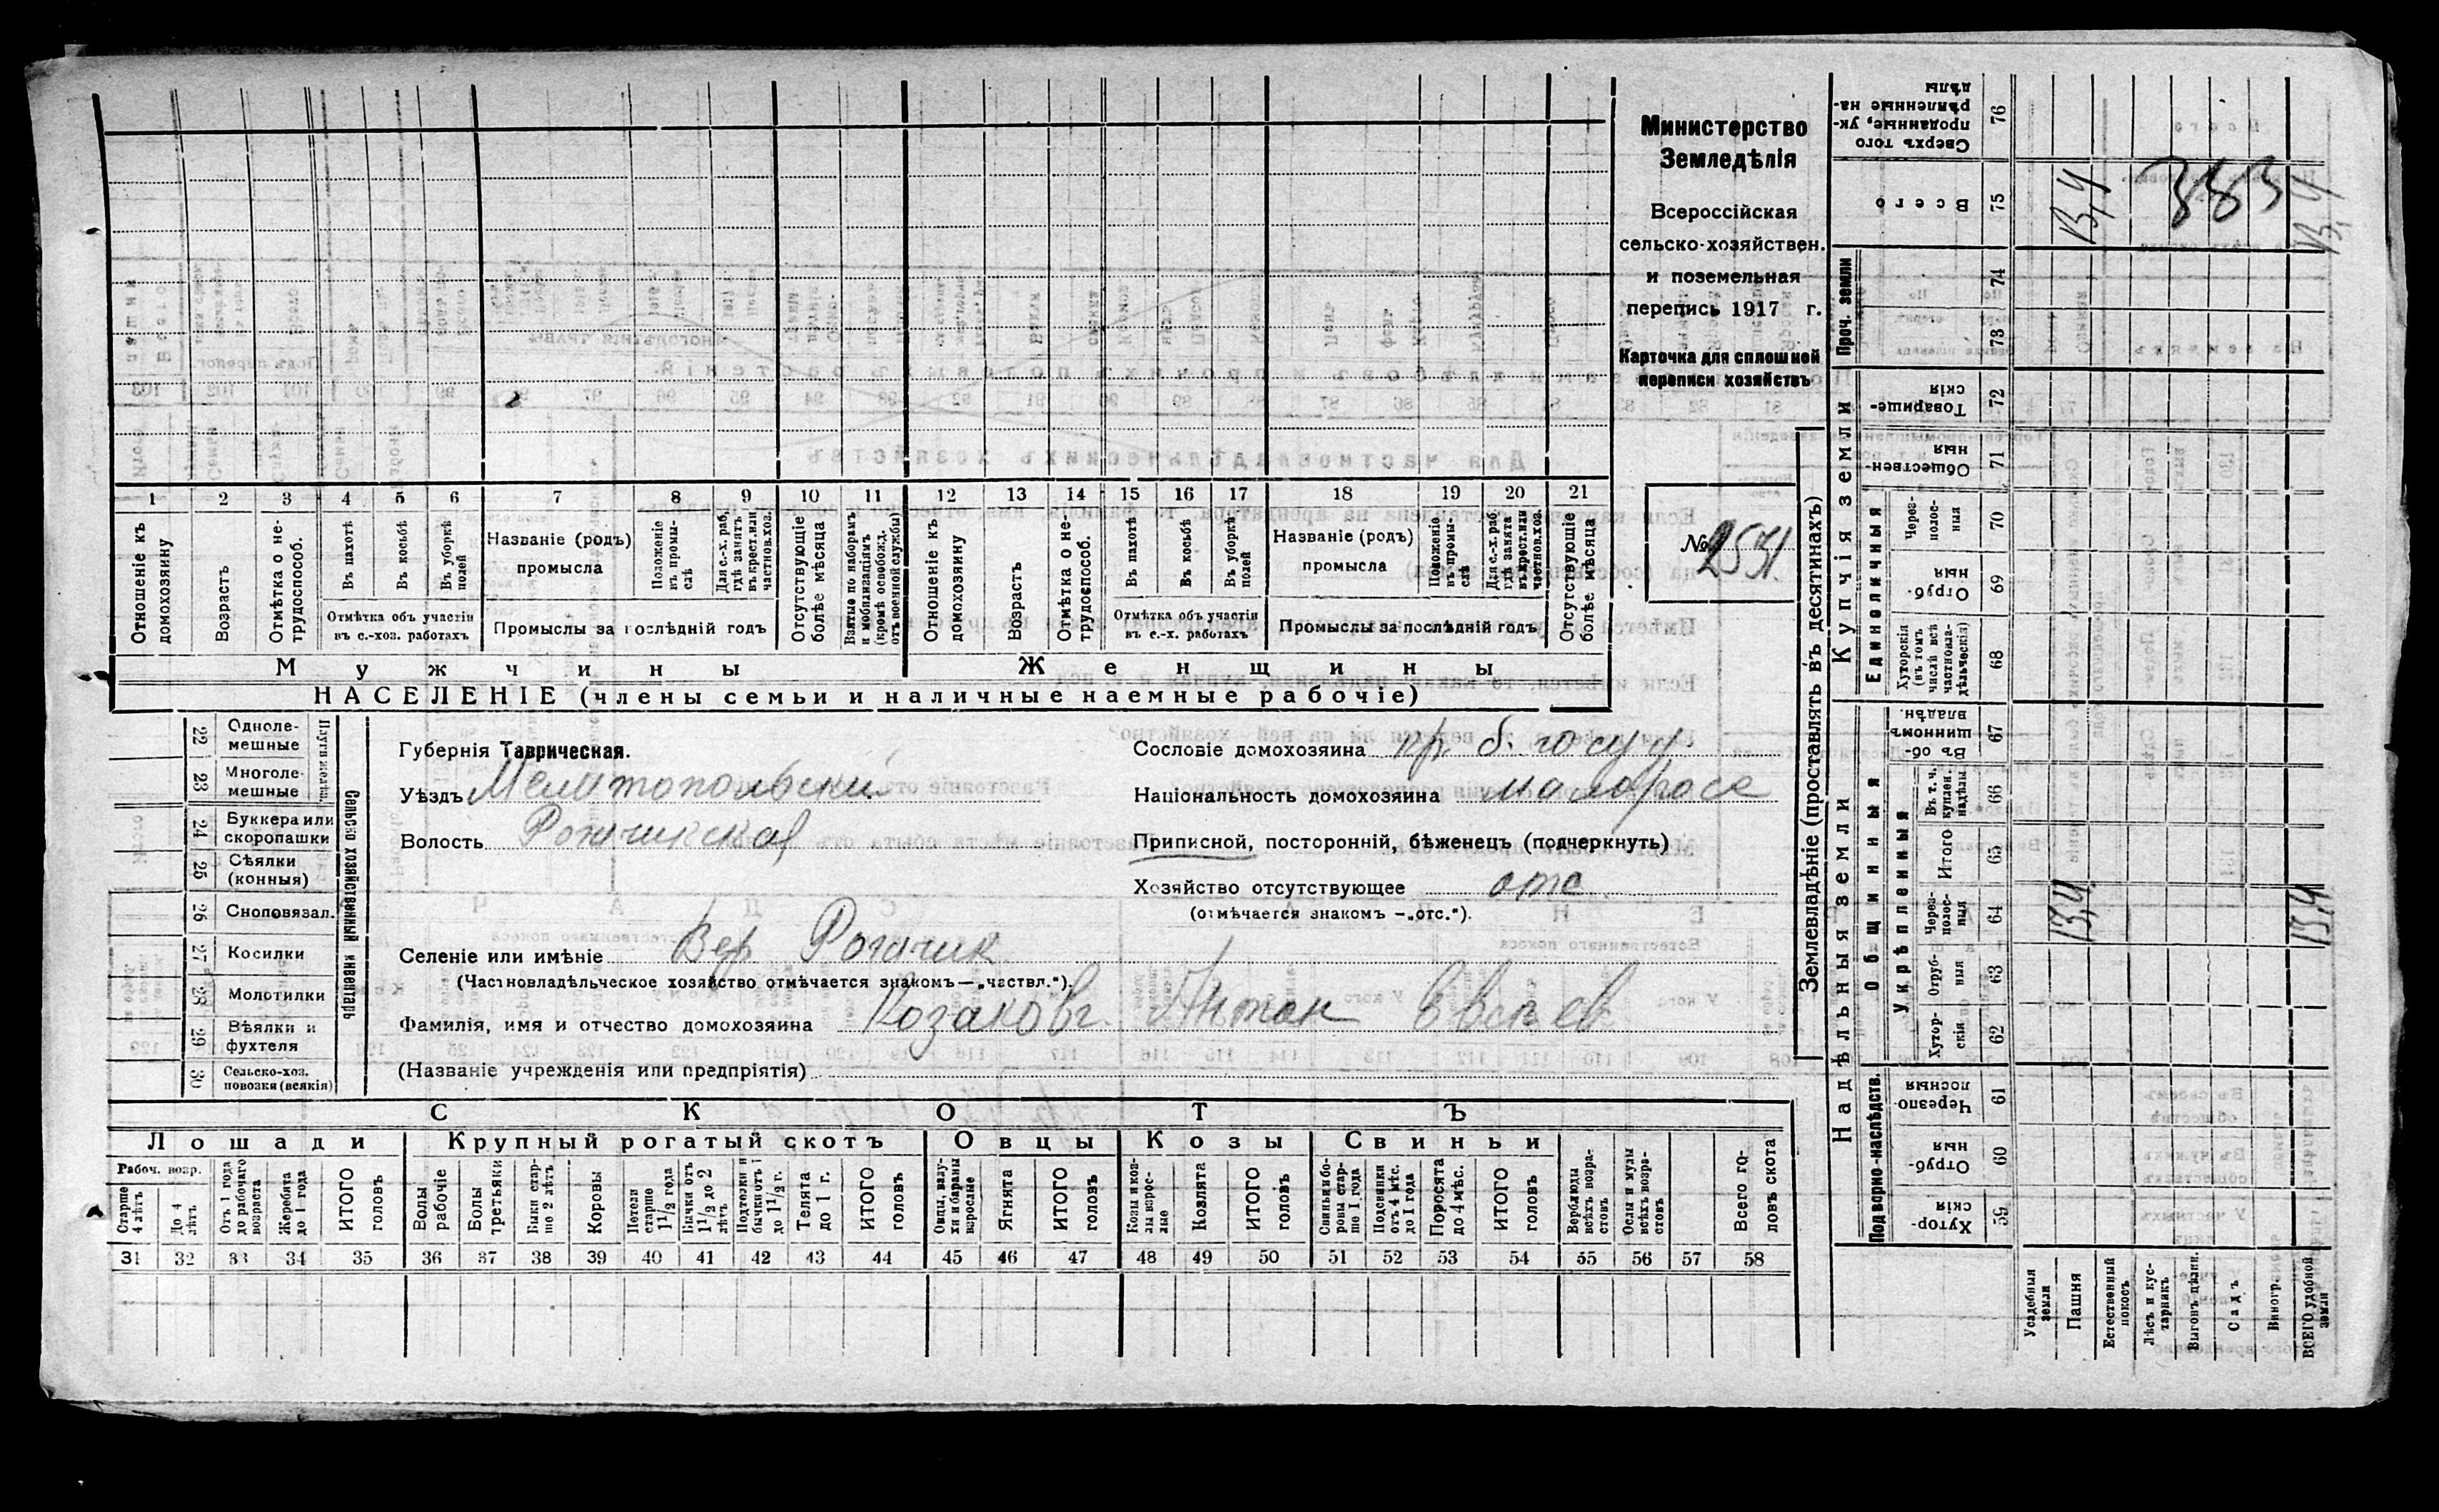 Министерство
Земледѣлія
Всероссійская
сельско-хозяйствен.
и поземельная
перепись 1917 г.
Карточка для сплошней
переписи хозяйствъ
№ 2531
1 2 3 4 5 6 7 8 9 10 11 12 13 14 15 16 17 18 19 20 21
Отношеніе къ домохозяину
Возрастъ
Отмѣтка о не-трудоспособ.
Въ пахотѣ
Въ косьбѣ
Въ уборкѣ полей
Отмѣтка объ участіи
въ с.-хоз. работахъ
Названіе (родъ)
промысла
Положеніе въ промы-слѣ
Для с.-х. раб. гдѣ занятъ въ крест. или частнов. хоз.
Промыслы за послѣдній годъ
Отсутствующіе болѣе мѣсяца
Взятые по наборамъ и мобилизаціямъ (кромѣ освобожд. отъ военной службы)
Отношеніе къ домохозяину
Возрастъ
Отмѣтка о не-трудоспособ.
Въ пахотѣ
Въ косьбѣ
Въ уборкѣ полей
Отмѣтка объ участіи
въ с.-х. работахъ
Названіе (родъ)
промысла
Положеніе въ промы-слѣ
Для с.-х. раб. гдѣ занята въ крест. или частнов. хоз.
Промыслы за послѣдній годъ
Отсутствующіе болѣе мѣсяца
Мужчины
Женщины
НАСЕЛЕНІЕ (члены семьи и наличные наемные рабочіе)
22 Одноле-мешные
23 Многоле-мешные
24 Буккера или скоропашки
25 Сѣялки (конныя)
26 Сноповязал.
27 Косилки
28 Молотилки
29 Вѣялки и фухтеля
30 Сельско-хоз. повозки (всякія)
Сельско хозяйственный инвентарь
Губернія Таврическая.
Уѣздъ Мелитопольскій
Волость Рогачикская
Селеніе или имѣніе Вер Рогачик
(Частновладѣльческое хозяйство отмѣчается знакомъ—„частвл.“).
Фамилія, имя и отчество домохозяина Козаковъ Антон Евсѣев
(Названіе учрежденія или предпріятія)
Сословіе домохозяина кр. б. госуд.
Національность домохозяина малоросс
Приписной, посторонній, бѣженецъ (подчеркнуть)
Хозяйство отсутствующее отс
(отмѣчается знакомъ —„отс.“).
СКОТЪ
Лошади
Крупный рогатый скотъ
Овцы
Козы
Свиньи
Рабоч. возр.
Старше 4 лѣтъ
До 4 лѣтъ
Отъ 1 года до рабочаго возраста
Жеребята до 1 года
ИТОГО головъ
Волы рабочіе
Волы третьяки
Быки стар-ше 2 лѣтъ
Коровы
Нетели старше 1 1/2 года
Бычки отъ 1 1/2 до 2 лѣтъ
Подтелки и бычки отъ 1 до 1 1/2 г.
Телята до 1 г.
ИТОГО головъ
Овцы, валу-хи и бараны взрослые
Ягнята
ИТОГО головъ
Козы и коз-лы взрос-лые
Козлята
ИТОГО головъ
Свиньи и бо-ровы стар-ше 1 года
Подсвинки отъ 4 мѣс. до 1 года
Поросята до 4 мѣс.
ИТОГО головъ
Верблюды всѣхъ возра-стовъ
Ослы и мулы всѣхъ возра-стовъ
Всего го-ловъ скота
31 32 33 34 35 36 37 38 39 40 41 42 43 44 45 46 47 48 49 50 51 52 53 54 55 56 57 58
Землевладѣніе (проставлять въ десятинахъ)
Надѣльныя земли
Купчія земли
Проч. земли
Подворно-наслѣдств.
Общинныя
Укрѣпленныя
Единоличныя
Сверхъ того проданные, ук-рѣпленные на-дѣлы 76
Всего 75
74
73
Товарище-скія 72
Обществен-ныя 71
Через-полос-ныя 70
Отруб-ныя 69
Хуторскія (въ томъ числѣ всѣ частновла-дѣльческія) 68
Въ об-щинномъ владѣн. 67
Въ т. ч. куплен. надѣлы 66
Итого 65
Через-полос-ныя 64
Отруб-ныя 63
Хутор-скія 62
Черезпо-лосныя 61
Отруб-ныя 60
Хутор-скія 59
13,4
383
13,4
13,4
13,4
Усадебныя земли
Пашня
Естественный покосъ
Лѣсъ и кус-тарникъ
Выгонъ цѣлин.
Садъ
Виногр.
ВСЕГО удобной земли